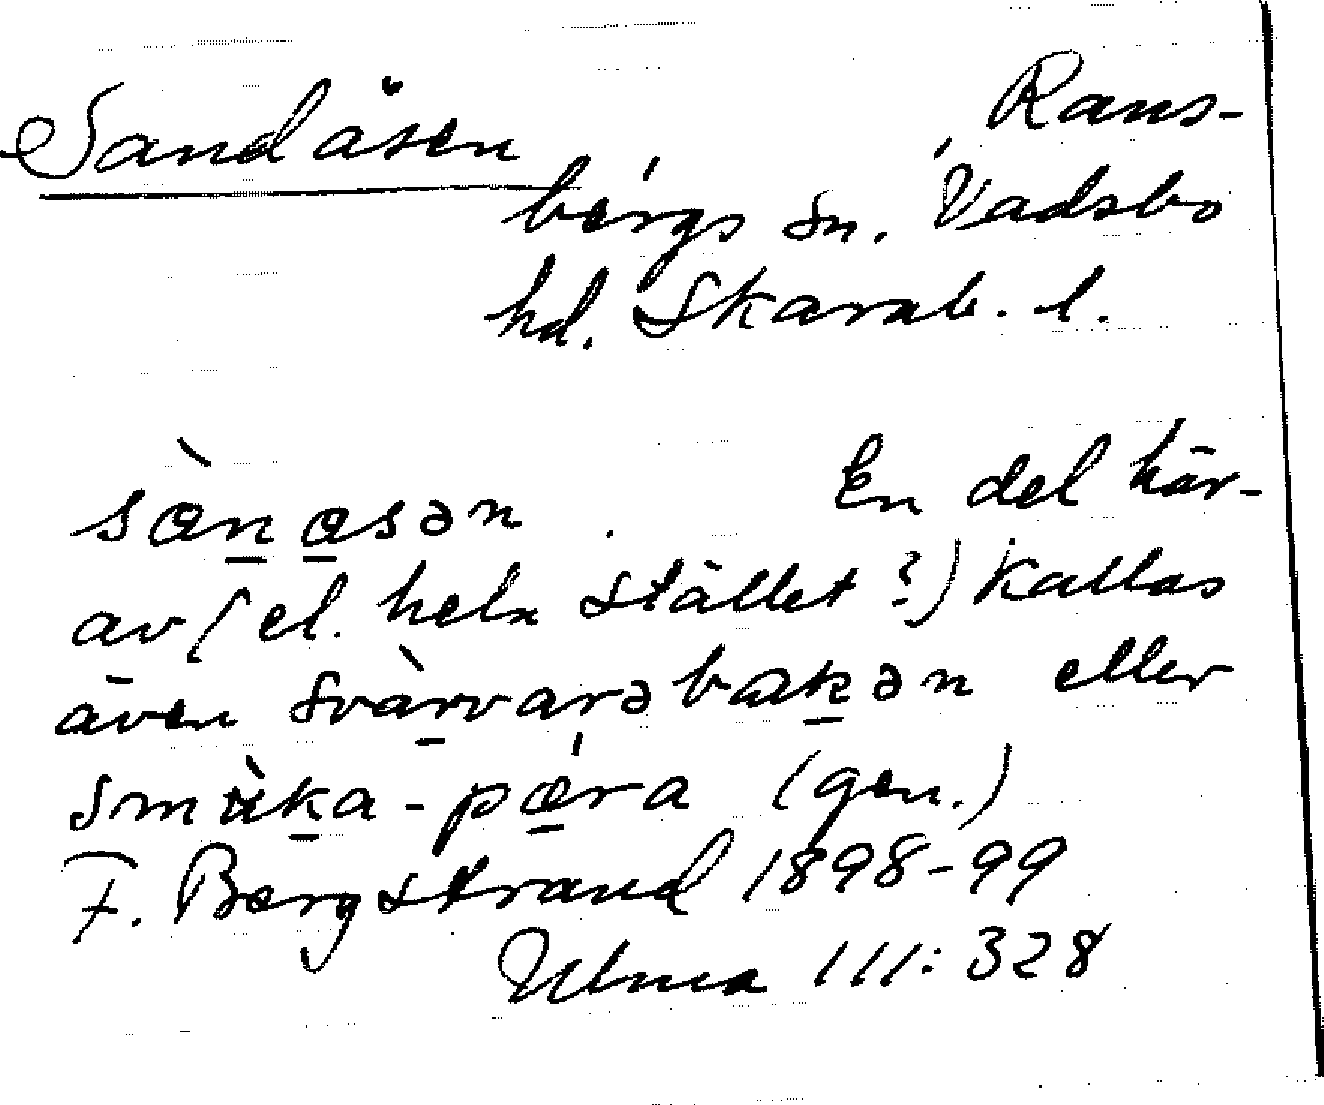 Sandåsen, Rans-
bergs sn. Vadsbo
hd. Skarab. l.
sæ̀n̲a̲sən. En del här-
av (el. hela stället?) kallas
även svàr̲varəbak̲ən eller
smùk̲a-pǽ̲ra (gen.)
F. Bergstrand 1898-99
Ulma 111:328